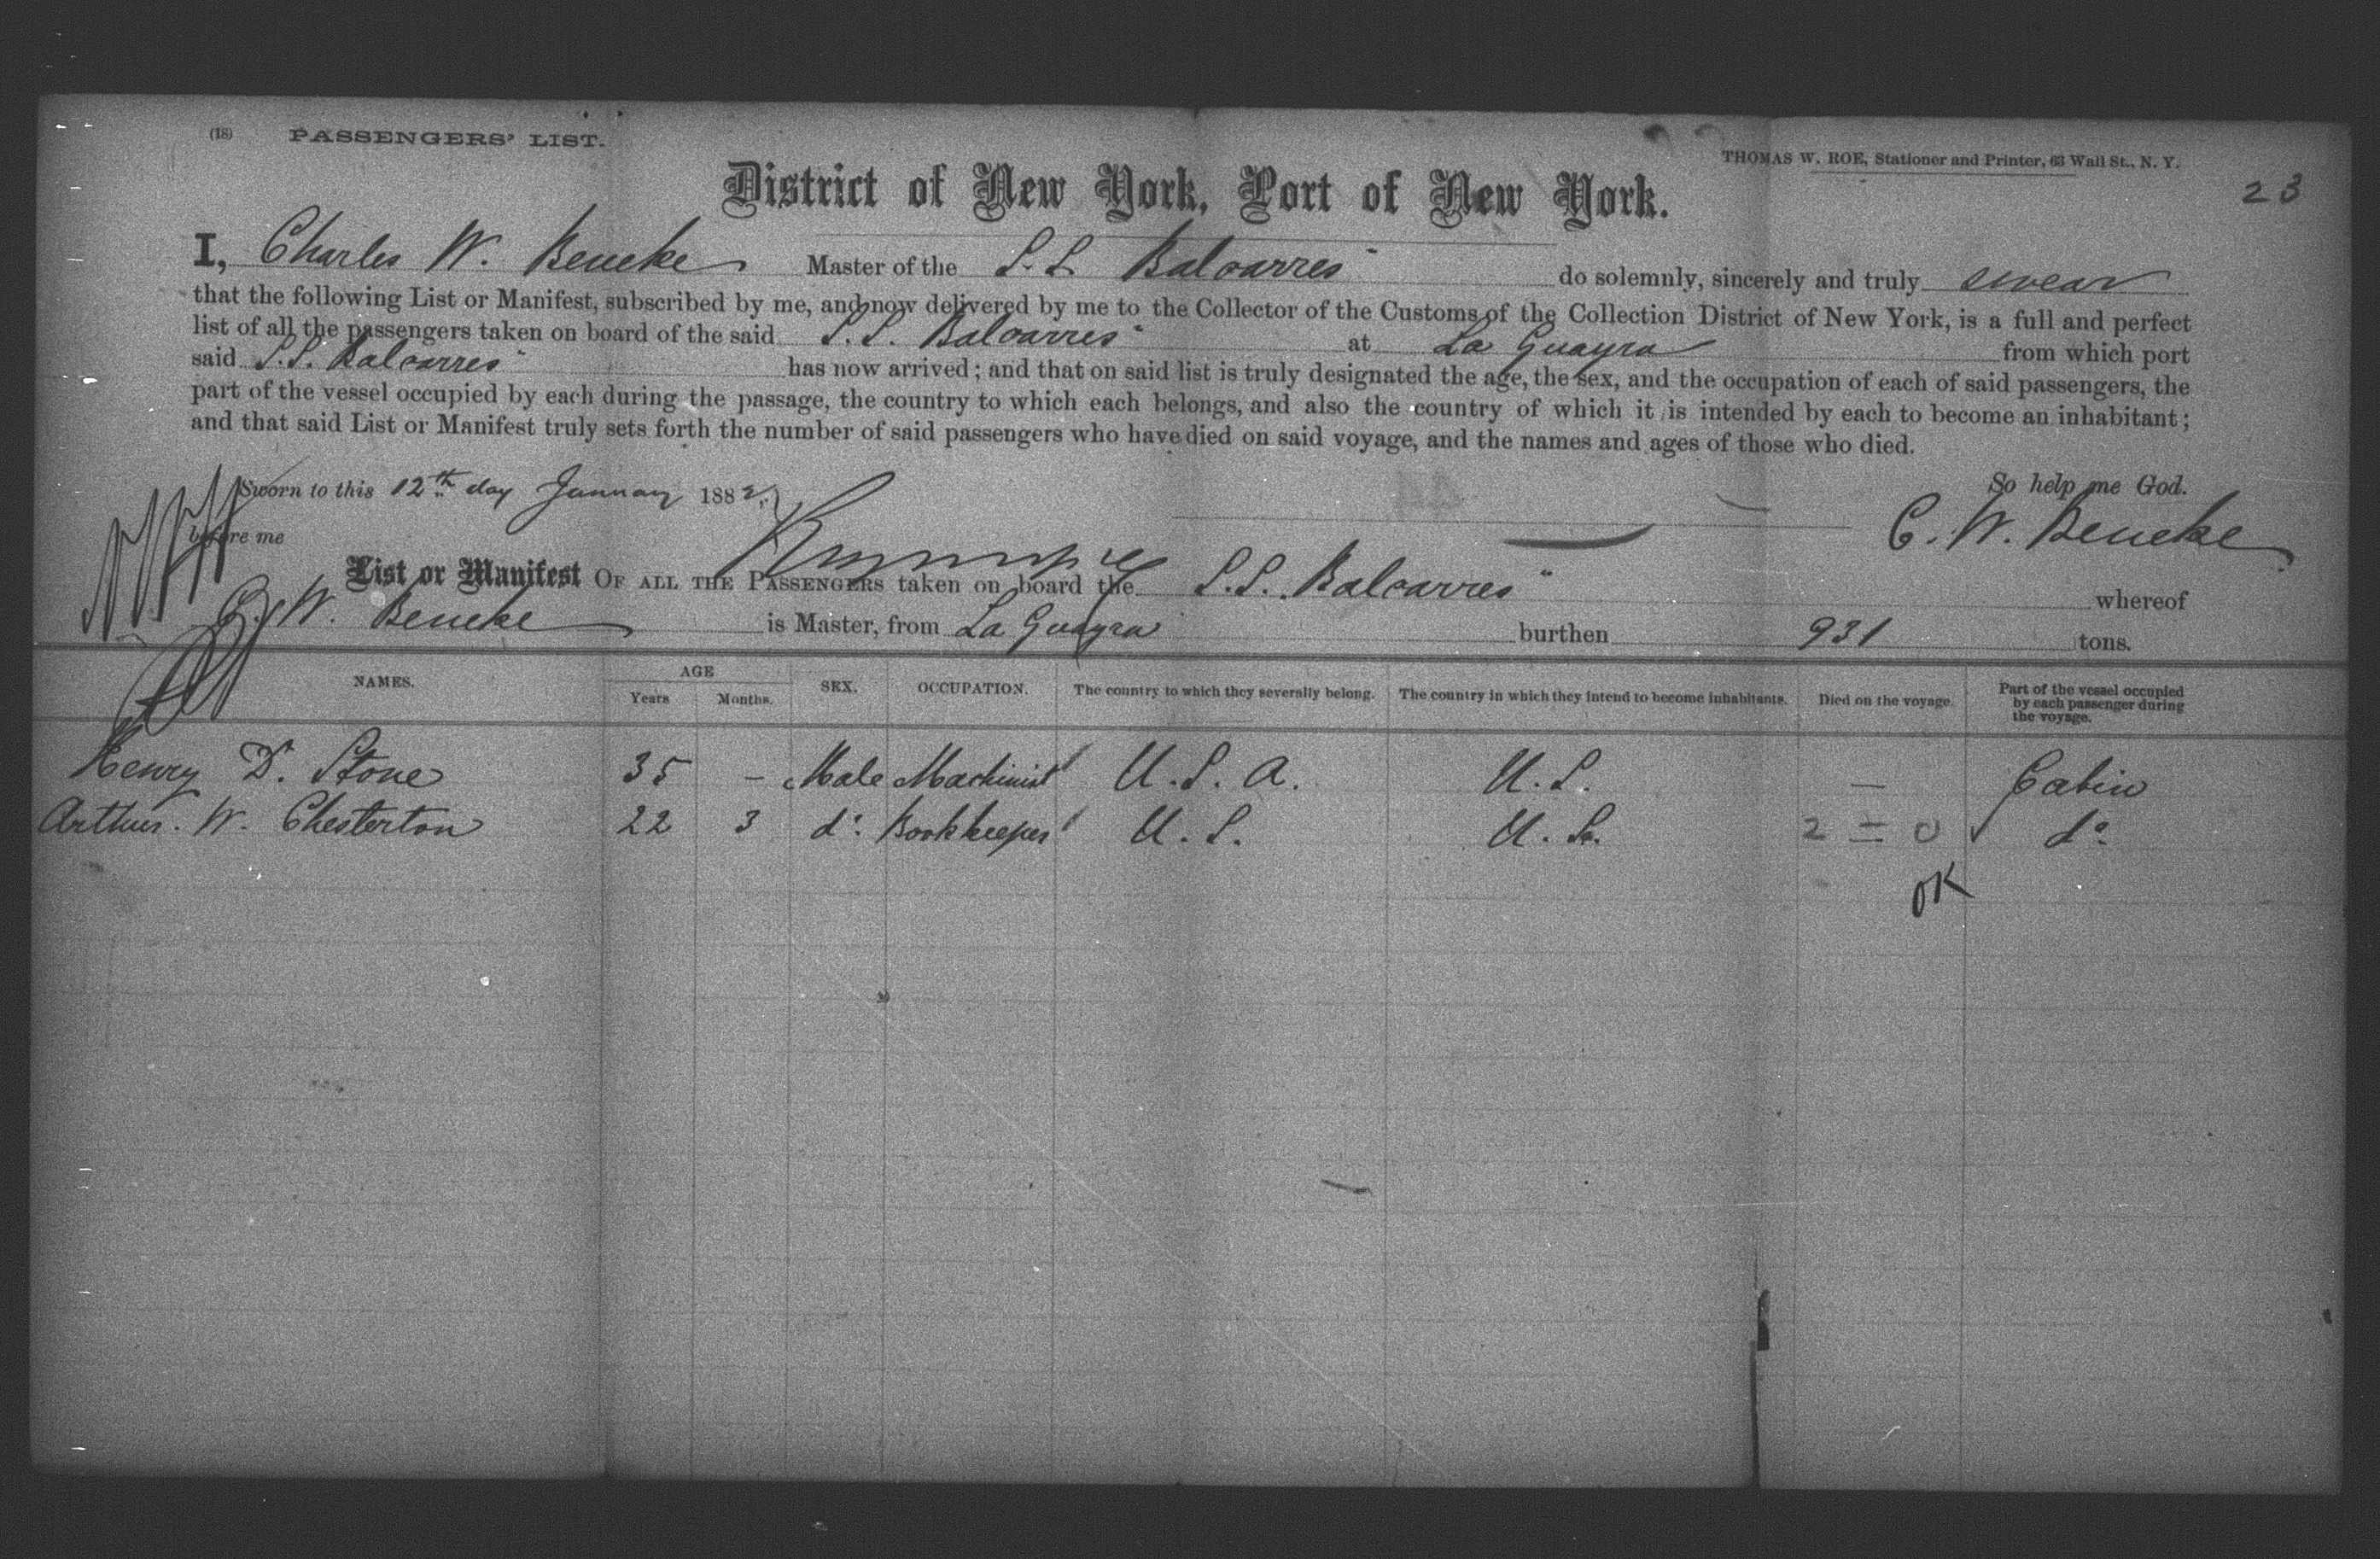 (18) PASSENGERS' LIST.
THOMAS W. ROE, Stationer and Printer, 63 Wall St., N. Y.
23
District of New York, Port of New York.
I, Charles W. Beneke Master of the S.S. Balcarres" do solemnly, sincerely and truly swear
that the following List or Manifest, subscribed by me, and now delivered by me to the Collector of the Customs of the Collection District of New York, is a full and perfect
list of all the passengers taken on board of the said S.S. Balcarres" at La Guayra from which port
said S.S. Balcarres" has now arrived; and that on said list is truly designated the age, the sex, and the occupation of each of said passengers, the
part of the vessel occupied by each during the passage, the country to which each belongs, and also the country of which it is intended by each to become an inhabitant;
and that said List or Manifest truly sets forth the number of said passengers who have died on said voyage, and the names and ages of those who died.
So help me God.
Sworn to this 12th day January 1882
before me
C. W. Beneke
List or Manifest OF ALL THE PASSENGERS taken on board the S.S. Balcarres" whereof
C. W. Beneke is Master, from La Guayra burthen 931 tons.
NAMES. AGE Years Months. SEX. OCCUPATION. The country to which they severally belong. The country in which they intend to become inhabitants. Died on the voyage. Part of the vessel occupied by each passenger during the voyage.
Henry D. Stone 35 – Male Machinist U.S.A. U.S. — Cabin
Arthur. W. Chesterton 22 3 do. Bookkeeper U.S. U.S. 2 = 0 do.
OK